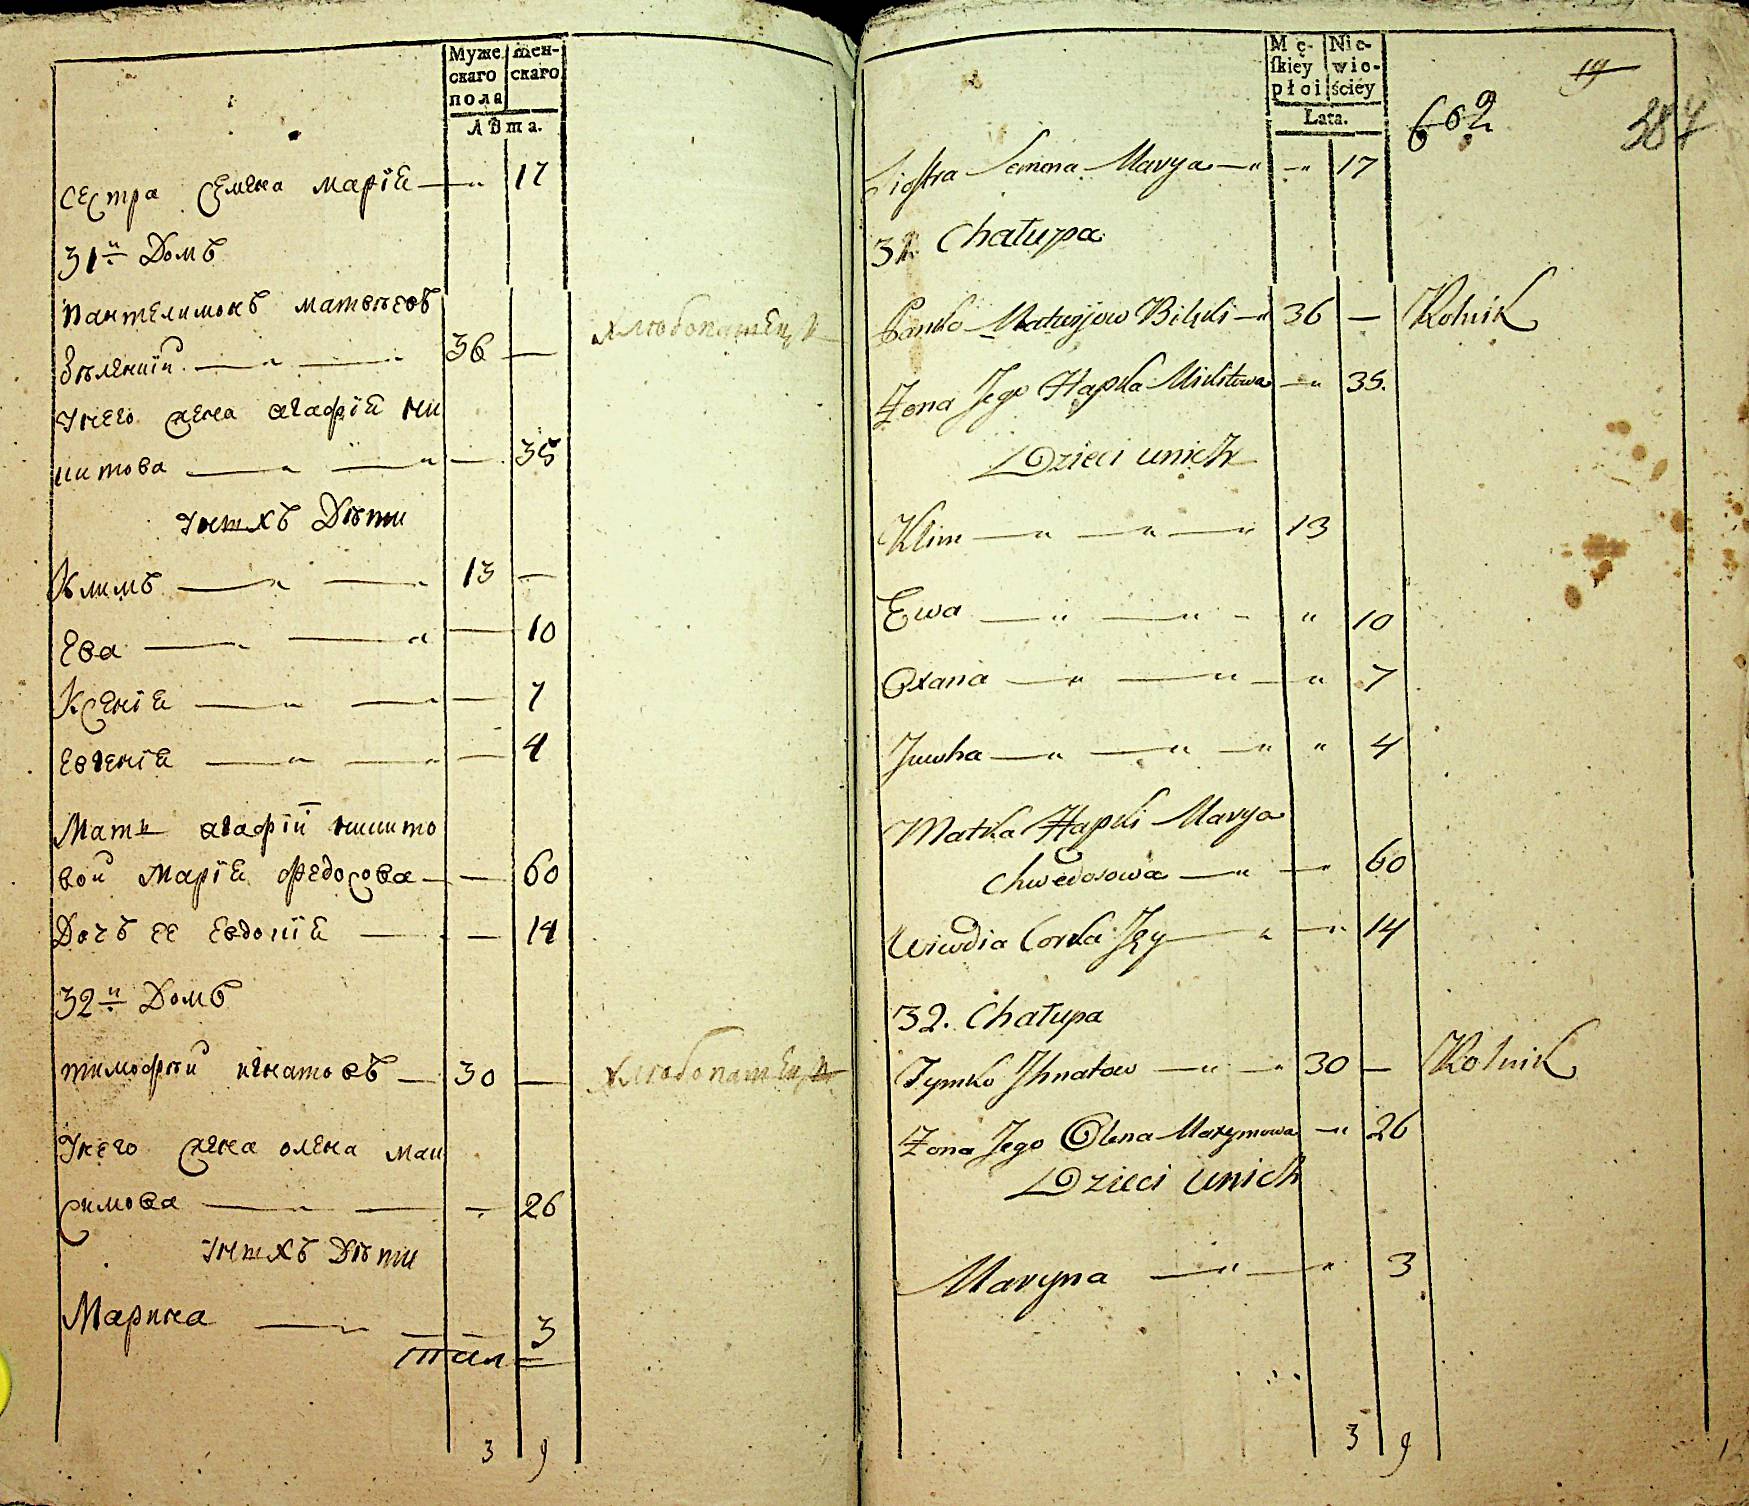 Муже
скаго
пола
жен-
скаго
лѣта.
сестра семена марія — 17
31й Домъ
пантелимонъ матвѣевъ
Зѣлений — 36 —
У него жена агафія ни
китова — — 35
У нихъ Дѣти
Климъ — 13 —
Ева — — 10
Ксенія — — 7
Евгенія — — 4
Мать агафіи никито
вой Марія федосова — — 60
Дочь ее Евдокія — — 14
32й Домъ
тимофѣй игнатовъ — 30 — хлебопашецъ
У него жена олена мак
симова — — 26
У нихъ Дѣти
Марина — — 3
3 9
Mę-
ſkiey
płci
Nie-
wie-
ściey
Lata.
19
662
384
Siostra Semena Marya — " — " 17
31. Chałupa
Panko Matwijow Bilski — " 36 — Rolnik
Żona Jego Hapka Mikitowa — " 35.
Dzieci unich
Klim — " — " — " 13
Ewa — " — " - " 10
Oxana — " — " — " 7
Juwha — " — " — " " 4
Matka Hapki Marya
Chwedosowa — " — " 60
Wiwdia Corka Jey — " — " 14
32. Chałupa
Tymko Ihnatow — " — " 30 — Rolnik
Żona Jego Olena Maxymowa — " 26
Dzieci unich
Maryna — " — " 3
3 9